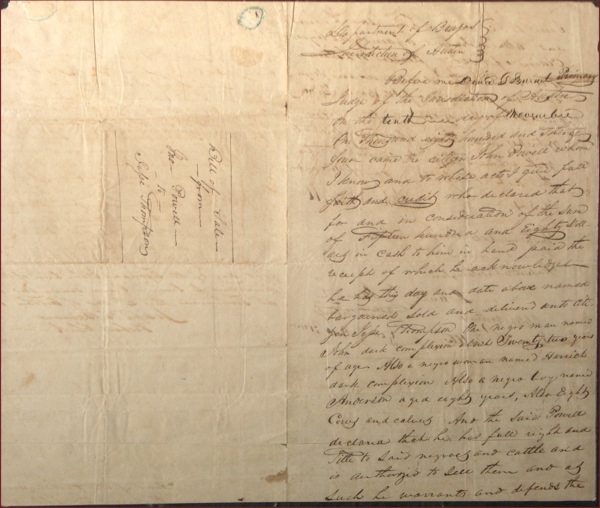 Bill of Sale
from
Powell
to
Jesse Thompson
Department of Bexar
Jurisdiction of Austin
Before me David G Burnet Primary
Judge of the Jurisdiction of Austin
on the tenth day of November
One Thousand eight hundred and thirty
four came the citizen John Powell whom
I know and to whose acts I give full
faith and credit who declared that
for and in consideration of the sum
of Fifteen hundred and Eighty Doll
ars in cash to him in hand paid the
receipt of which he acknowledges
he has this day and date above named
bargained sold and delivered unto Citi
zen Jesse Thompson One negro man named
John dark complexion about Twenty two years
of age Also a negro woman named Harriet
dark complexion Also a negro boy named
Anderson aged eight years, Also Eighty
Cows and calves And the said Powell
declares that he has full right and
Title to said negroes and cattle and
is authorized to sell them and as
such he warrants and defends the